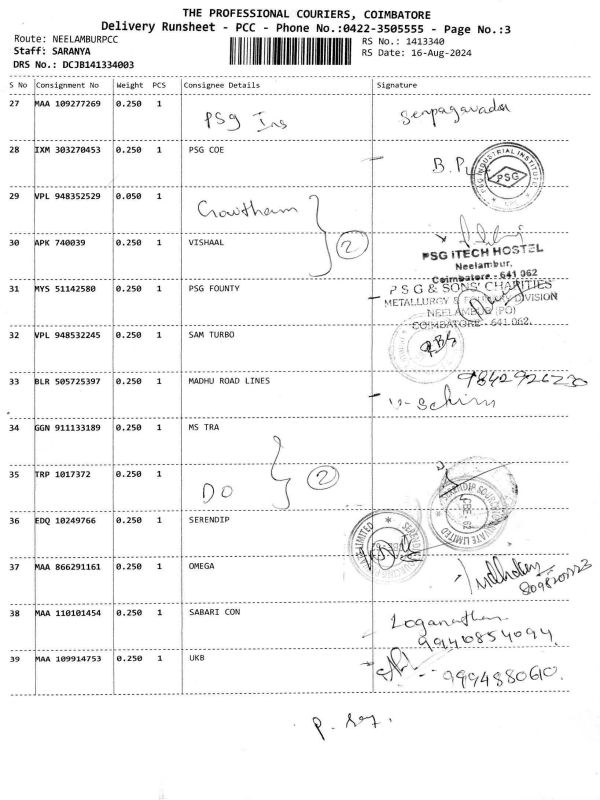 THE PROFESSIONAL COURIERS, COIMBATORE
Delivery Runsheet - PCC - Phone No.:0422-3505555 - Page No.:3
Route: NEELAMBURPCC
RS No.: 1413340
Staff: SARANYA
RS Date: 16-Aug-2024
DRS No.: DCJB141334003
S No Consignment No Weight PCS Consignee Details Signature
27 MAA 109277269 0.250 1 PSG Ins
28 IXM 303270453 0.250 1 PSG COE B.P
PSG INDUSTRIAL INSTITUTE
PSG
29 VPL 948352529 0.050 1 Gowtham
2
30 APK 740039 0.250 1 VISHAAL
PSG iTECH HOSTEL
Neelambur,
Coimbatore - 641 062
31 MYS 51142580 0.250 1 PSG FOUNTY
P S G & SONS' CHARITIES
METALLURGY & FOUNDRY DIVISION
NEELAMBUR (PO)
COIMBATORE - 641 062.
32 VPL 948532245 0.250 1 SAM TURBO
33 BLR 505725397 0.250 1 MADHU ROAD LINES
9842926230
34 GGN 911133189 0.250 1 MS TRA
2
35 TRP 1017372 0.250 1 DO
36 EDQ 10249766 0.250 1 SERENDIP
37 MAA 866291161 0.250 1 OMEGA
38 MAA 110101454 0.250 1 SABARI CON Loganathan
9940854094
39 MAA 109914753 0.250 1 UKB 9994880610.